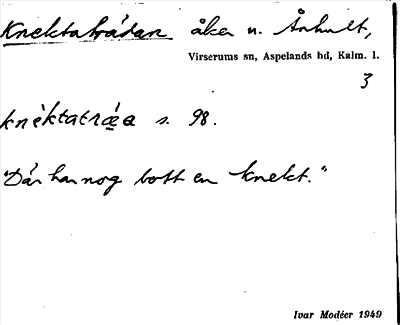 Knektatrådan åker u. Ånhult,
Virserums sn, Aspelands hd, Kalm. l.
3
knèktatrǽa s. 98.
"Där har nog bott en knekt."
Ivar Modéer 1949